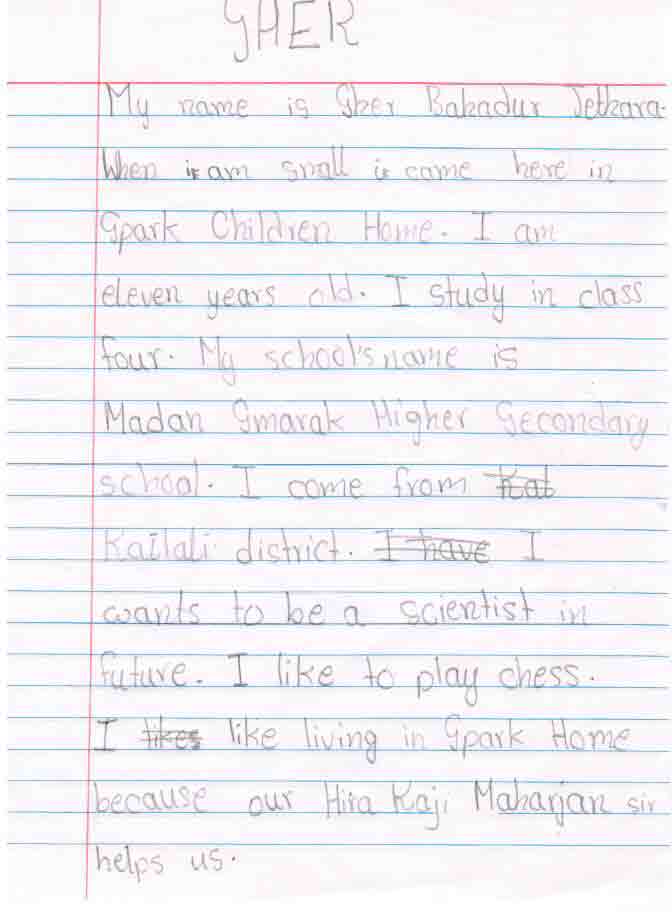 SHER
My name is Sher Bahadur Jethara.
When i am small i came here in
Spark Children Home. I am
eleven years old. I study in class
four. My school's name is
Madan Smarak Higher Secondary
school. I come from Kat
Kailali district. I have I
wants to be a scientist in
future. I like to play chess.
I likes like living in Spark Home
because our Hira Kaji Maharjan sir
helps us.